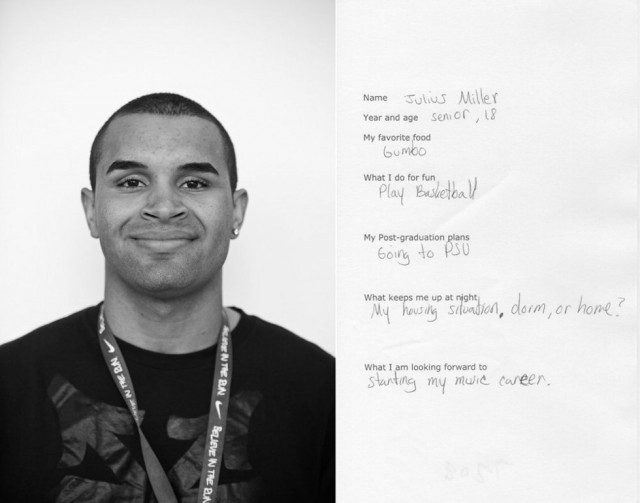 BELIEVE IN THE RUN
BELIEVE IN THE RUN
Name Julius Miller
Year and age senior, 18
My favorite food
Gumbo
What I do for fun
Play Basketball
My Post-graduation plans
Going to PSU
What keeps me up at night
My housing situation, dorm, or home?
What I am looking forward to
starting my music career.